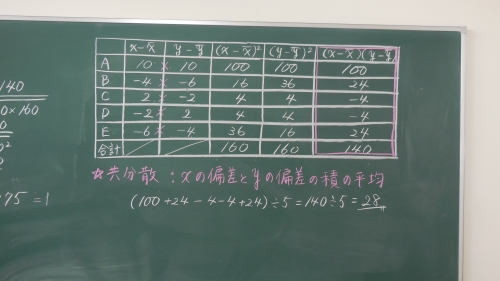 x-x̄ y-ȳ (x-x̄)² (y-ȳ)² (x-x̄)(y-ȳ)
A 10 × 10 100 100 100
B -4 × -6 16 36 24
C 2 × -2 4 4 -4
D -2 × 2 4 4 -4
E -6 × -4 36 16 24
合計 160 160 140
☆共分散 : xの偏差とyの偏差の積の平均
(100+24-4-4+24)÷5=140÷5=28
140
0×160
75=1